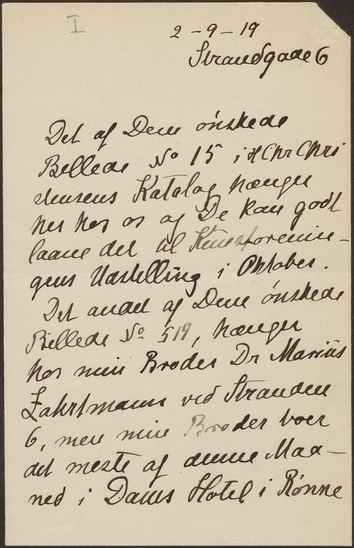 I
2-9-19
Strandgade 6
Det af Dem ønskede
Billede No 15 i H Chr Chri
stensens Katalog hænger
her hos os og De kan godt
laane det til Kunstforenin-
gens Udstilling i Oktober.
Det andet af Dem ønskede
Billede No 519, hænger
hos min Broder Dr Marius
Zahrtmann ved Stranden
6, men min Broder boer
det meste af denne Maa-
ned i Dams Hotel i Rønne